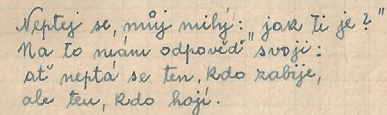 Neptej se, můj milý: „jak ti je?"
Na to mám odpověď svoji:
ať neptá se ten, kdo zabije,
ale ten, kdo hojí.